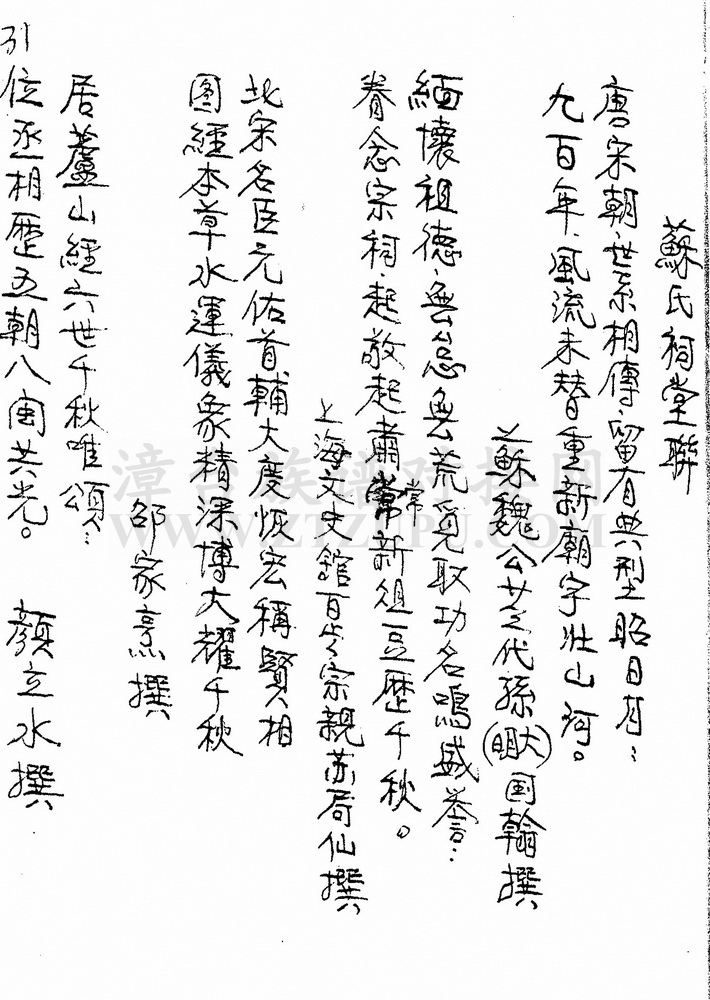 蘇氏祠堂聯
唐宋朝·世系相傳·留有典型昭日月：
九百年·風流未替重新廟宇壯山河。
蘇魏公廿之代孫(大明)国翰撰
緬懷祖德·無怠無荒覓取功名鳴盛誉：
眷念宗祠·起敬起肅常新俎豆歷千秋。
常
上海文史館百岁宗親苏局仙撰
北宋名臣元佑首輔大度恢宏稱賢相
图經本草水運儀象精深博大耀千秋
邵家烹撰
居蘆山經六世千秋唯頌：
引位丞相歷五朝八闽共光。 顏立水撰
漳台族谱对接网
WWW.ZTZUPU.COM